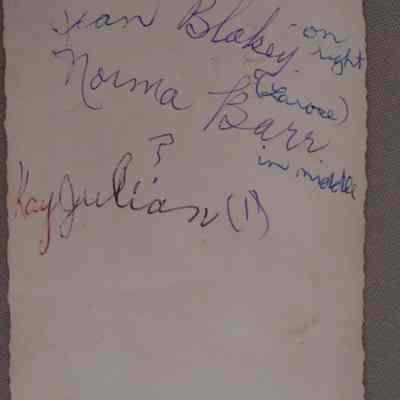 Jean Blakey on right
Norma Barr (Larose) in middle
?
Kay Julian (1)